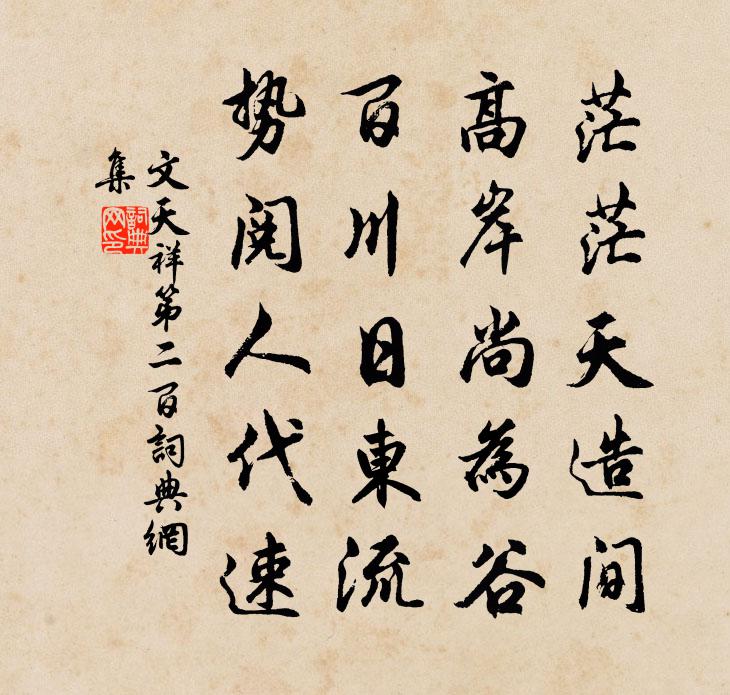 茫茫天造间
高岸尚為谷
百川日東流
势阅人代速
文天祥第二百詞典網
集
詞典網印